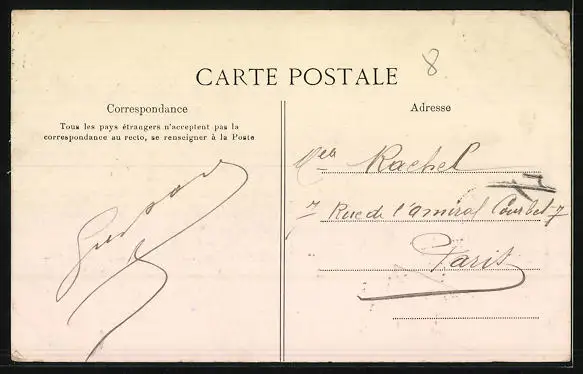 8
CARTE POSTALE
Correspondance
Tous les pays étrangers n'acceptent pas la
correspondance au recto, se renseigner à la Poste
Adresse
Rachel
7 Rue de l'amiral Courbet 7
Paris